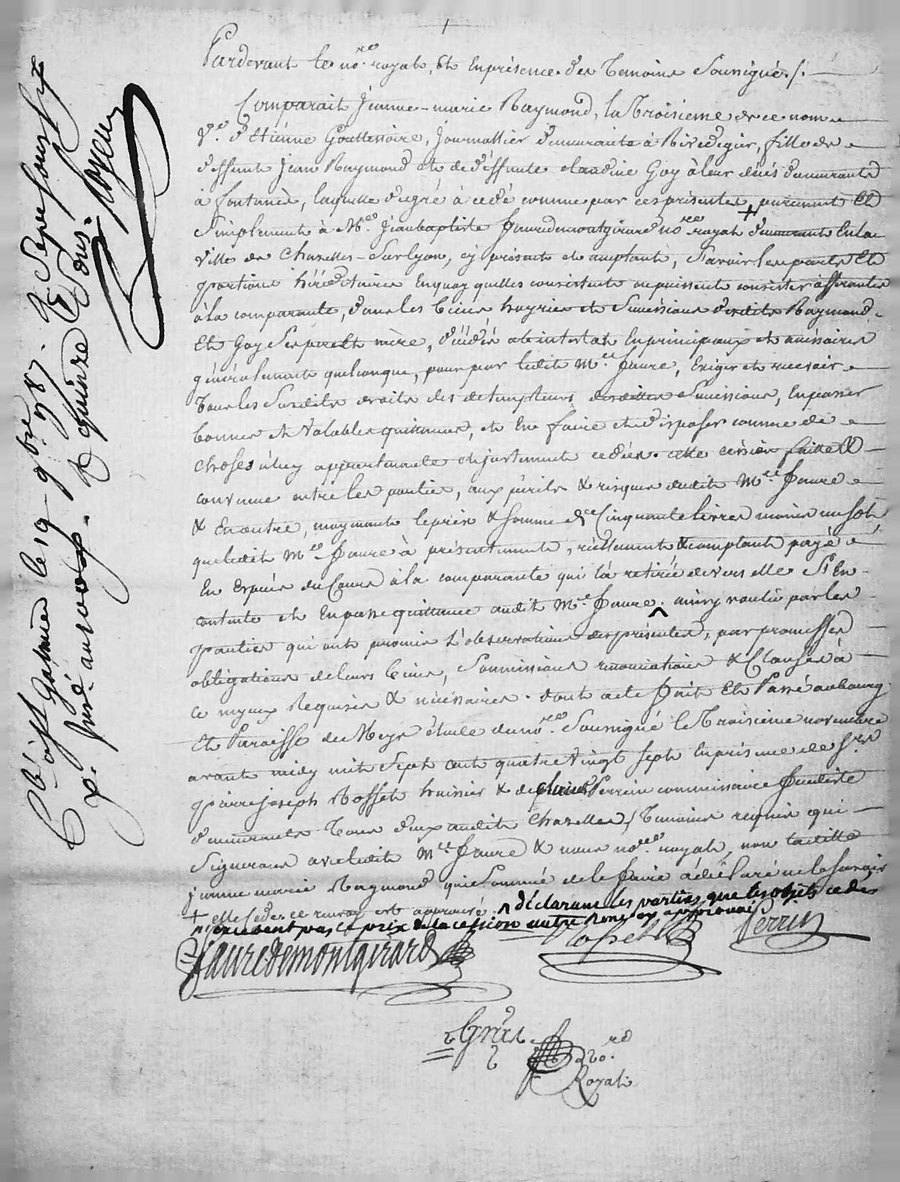 Pardevant le no.re royal, Et Enpresence des Temoins Soussignés /.
Comparait Jeanne-marie Raymond, la Troisieme de ce nom
V.e d'Etienne Gouttenoire, Journallier demeurante à Rivedegier, fille de
deffunt Jean Raymond et de deffunte claudine Goy à leur deces demeurants
à fontanès, laquelle de gré à cedé comme par ces presentes purement Et
Simplement à M.e Jeanbaptiste fauredemontgirard no.re royal demeurant En la
ville de Chazelles-Surlyon, cy present et acceptant, Savoir les parts Et
portions héréditaires En quoy quelles consistent ou puissent consister afferantes
à la comparante, dans les biens hoyries et Successions desdits Raymond
Et Goy Ses pere Et mère, décédés abintestat En principaux et accessoires
généralement quelconques, pour par ledit M.e faure, Exiger et recevoir
Tous les Susdits droits des detempteurs desdittes Successions, En passer
bonnes et Valables quittances, et En faire et disposer comme de
choses à luy appartenante et justement cedées. cette cession faitte Et
convenue entre les parties, aux périls & risques dudit M.e faure
& En outre, moyennant le prix & somme de Cinquante livres moins un sol
que ledit M.e faure à présentement, réellement & comptant payé
En Especes du Cours à la comparante qui la retirée devers elle S'En
contente et En passe quittance audit M.e faure. ainsy voulu par les
parties qui ont promis l'observation des presentes, par promesses
obligations de leurs biens, Soumissions renonciations & Clauses à
ce myeux Requises & nécéssaires. dont acte fait Et Passé au bourg
Et Paroisse de Meys étude du no.re Soussigné le Troisieme novembre
avant midy mil Sept cent quatre vingt Sept En presence de S.rs
pierre joseph Rosset huissier & de Perrin commissaire
demeurants Tous deux audit Chazelles, Temoins requis qui
Signeront avec ledit M.e faure & nous no.re royal, non laditte
jeanne marie Raymond, qui Sommée de le faire à déclaré ne le Savoir
+ elle cede. ce renvoy est approuvé. ^ déclarant les parties que les objets cedés
n'excedent pas le prix de la cession autre renvoy approuvé
fauredemontgirard Rosset Perrin
no.re
Royal
C.té à St Galmier le 19 9bre 1787. R
p. quinze Sous.